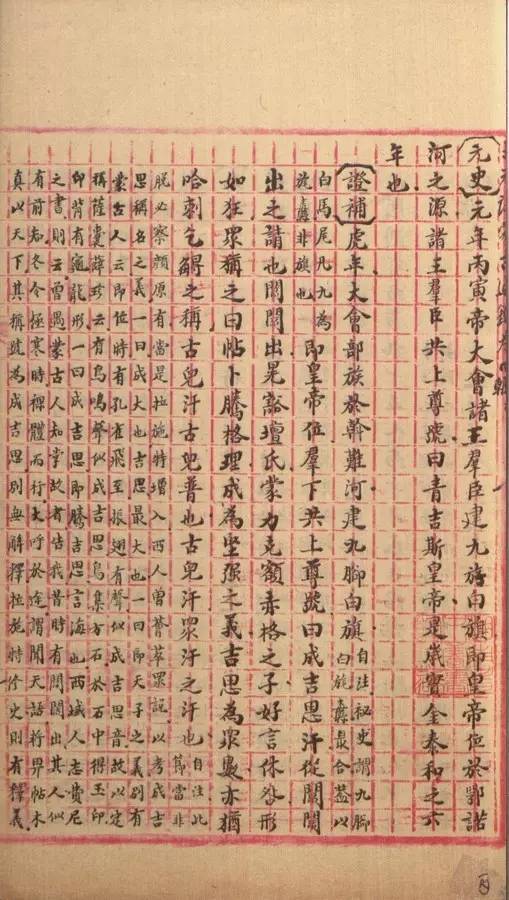 元史元年丙寅帝大會諸王羣臣建九斿白旗即皇帝位於鄂諾
河之源諸王羣臣共上尊號曰青吉斯皇帝是歲實金泰和之六
年也
證補虎年大會部族於斡難河建九脚白旗自注秘史謂九脚
白旄纛最合蓋以
白馬尾凡九為
旄纛非旗也
即皇帝位羣下共上尊號曰成吉思汗從闊闊
出之請也闊闊出晃豁壇氏蒙力克額赤格之子好言休咎形
如狂眾稱之曰帖卜騰格理成為堅强之義吉思為眾數亦猶
哈剌乞䚟之稱古兒汗古兒普也古兒汗眾汗之汗也自注此
節當非
脫必察顏原有當是拉施特增入西人曾薈萃眾說以考成吉
思稱名之義一曰成大也吉思最大也一曰即天子之義別有
蒙古人云即位時有孔雀飛至振翅有聲似成吉思音故以定
稱薩囊薛珍云有鳥鳴聲似成吉思鳥集方石於石中得玉印
印背有龜龍形一曰成吉思即騰吉思言海也西域人志費尼
之書則云曾遇蒙古人知掌故者告我昔時有闊闊出其人似
有前知冬令極寒時裸體而行大呼於途謂聞天語將畀帖木
真以天下其稱號為成吉思別無解釋拉施特修史則有釋義